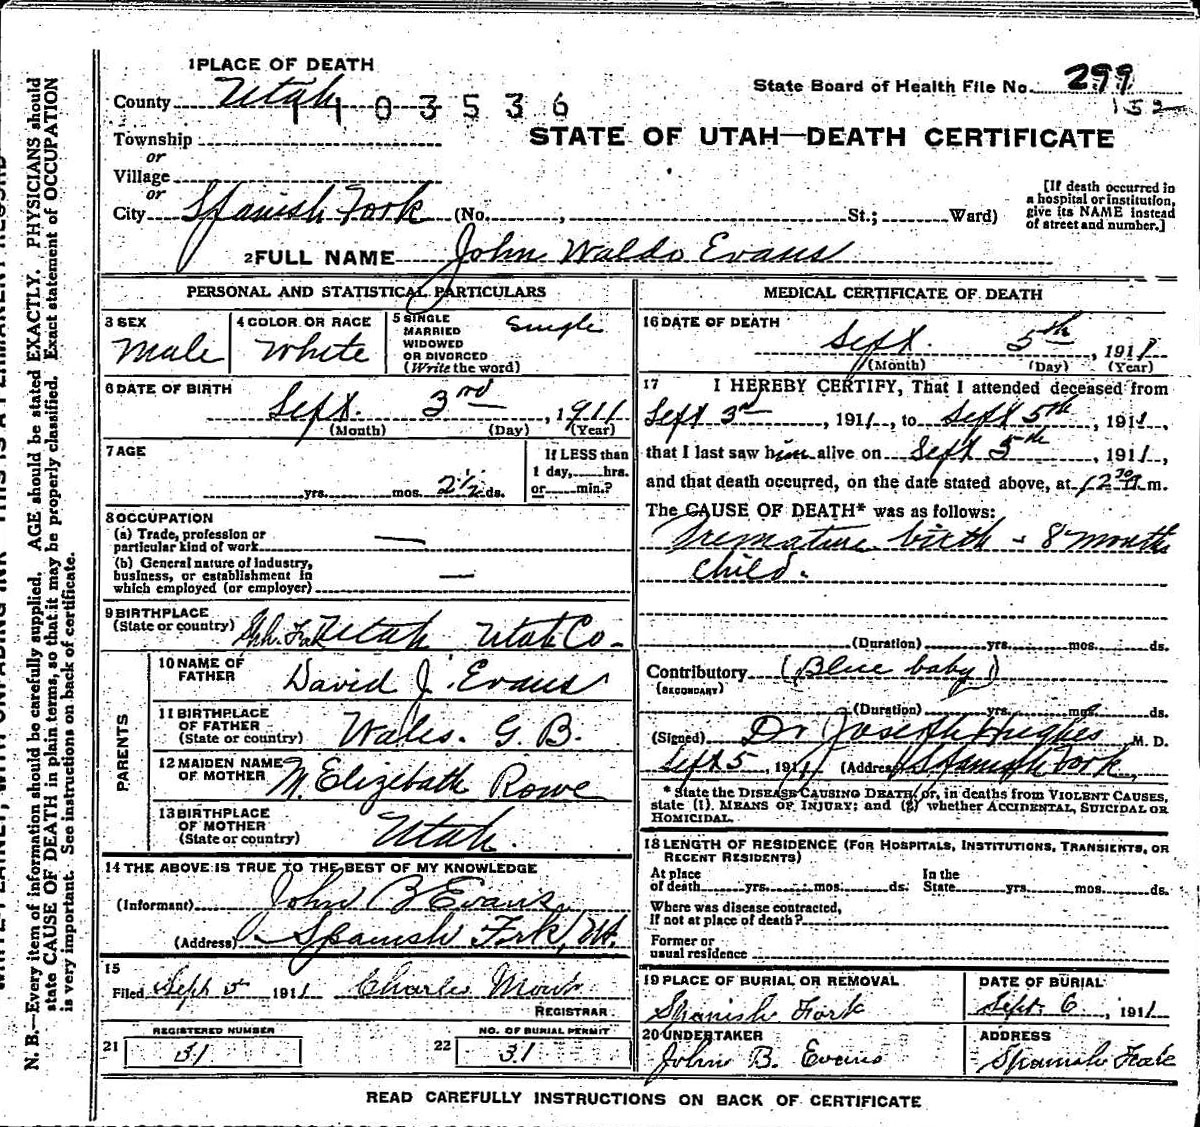 1 PLACE OF DEATH
County Utah
1103536
State Board of Health File No. 299
152
Township
or
Village
or
City Spanish Fork (No. , St.; Ward)
STATE OF UTAH—DEATH CERTIFICATE
[If death occurred in
a hospital or institution,
give its NAME instead
of street and number.]
2 FULL NAME John Waldo Evans
PERSONAL AND STATISTICAL PARTICULARS
3 SEX
Male
4 COLOR OR RACE
White
5 SINGLE
MARRIED
WIDOWED
OR DIVORCED
(Write the word)
Single
6 DATE OF BIRTH
Sept. 3rd, 1911
(Month) (Day) (Year)
7 AGE
yrs. mos. 2½ ds.
If LESS than
1 day, hrs.
or min.?
8 OCCUPATION
(a) Trade, profession or
particular kind of work —
(b) General nature of industry,
business, or establishment in
which employed (or employer) —
9 BIRTHPLACE
(State or country) Utah Utah Co-
PARENTS
10 NAME OF
FATHER David J. Evans
11 BIRTHPLACE
OF FATHER
(State or country) Wales. G. B.
12 MAIDEN NAME
OF MOTHER M. Elizebath Rowe
13 BIRTHPLACE
OF MOTHER
(State or country) Utah.
14 THE ABOVE IS TRUE TO THE BEST OF MY KNOWLEDGE
(Informant) John B Evans
(Address) Spanish Fork, Ut.
15
Filed Sept 5 1911 Charles
REGISTRAR
REGISTERED NUMBER
21 31
NO. OF BURIAL PERMIT
22 31
MEDICAL CERTIFICATE OF DEATH
16 DATE OF DEATH
Sept. 5th, 1911
(Month) (Day) (Year)
17 I HEREBY CERTIFY, That I attended deceased from
Sept 3rd, 1911, to Sept 5th, 1911,
that I last saw him alive on Sept 5th, 1911,
and that death occurred, on the date stated above, at 12 30 m.
The CAUSE OF DEATH* was as follows:
Premature birth - 8 months
child.
(Duration) yrs. mos. ds.
Contributory (Blue baby)
(SECONDARY)
(Duration) yrs. mos. ds.
(Signed) Dr Joseph Hughes M. D.
Sept 5, 1911 (Address) Spanish Fork,
* State the DISEASE CAUSING DEATH, or, in deaths from VIOLENT CAUSES,
state (1). MEANS OF INJURY; and (2) whether ACCIDENTAL, SUICIDAL OR
HOMICIDAL.
18 LENGTH OF RESIDENCE (FOR HOSPITALS, INSTITUTIONS, TRANSIENTS, OR
RECENT RESIDENTS)
At place
of death yrs. mos. ds.
In the
State yrs. mos. ds.
Where was disease contracted,
if not at place of death?
Former or
usual residence
19 PLACE OF BURIAL OR REMOVAL
Spanish Fork
DATE OF BURIAL
Sept. 6, 1911
20 UNDERTAKER
John B. Evans
ADDRESS
Spanish Fork
READ CAREFULLY INSTRUCTIONS ON BACK OF CERTIFICATE
N. B.—Every item of information should be carefully supplied. AGE should be stated EXACTLY. PHYSICIANS should
state CAUSE OF DEATH in plain terms, so that it may be properly classified. Exact statement of OCCUPATION
is very important. See instructions on back of certificate.